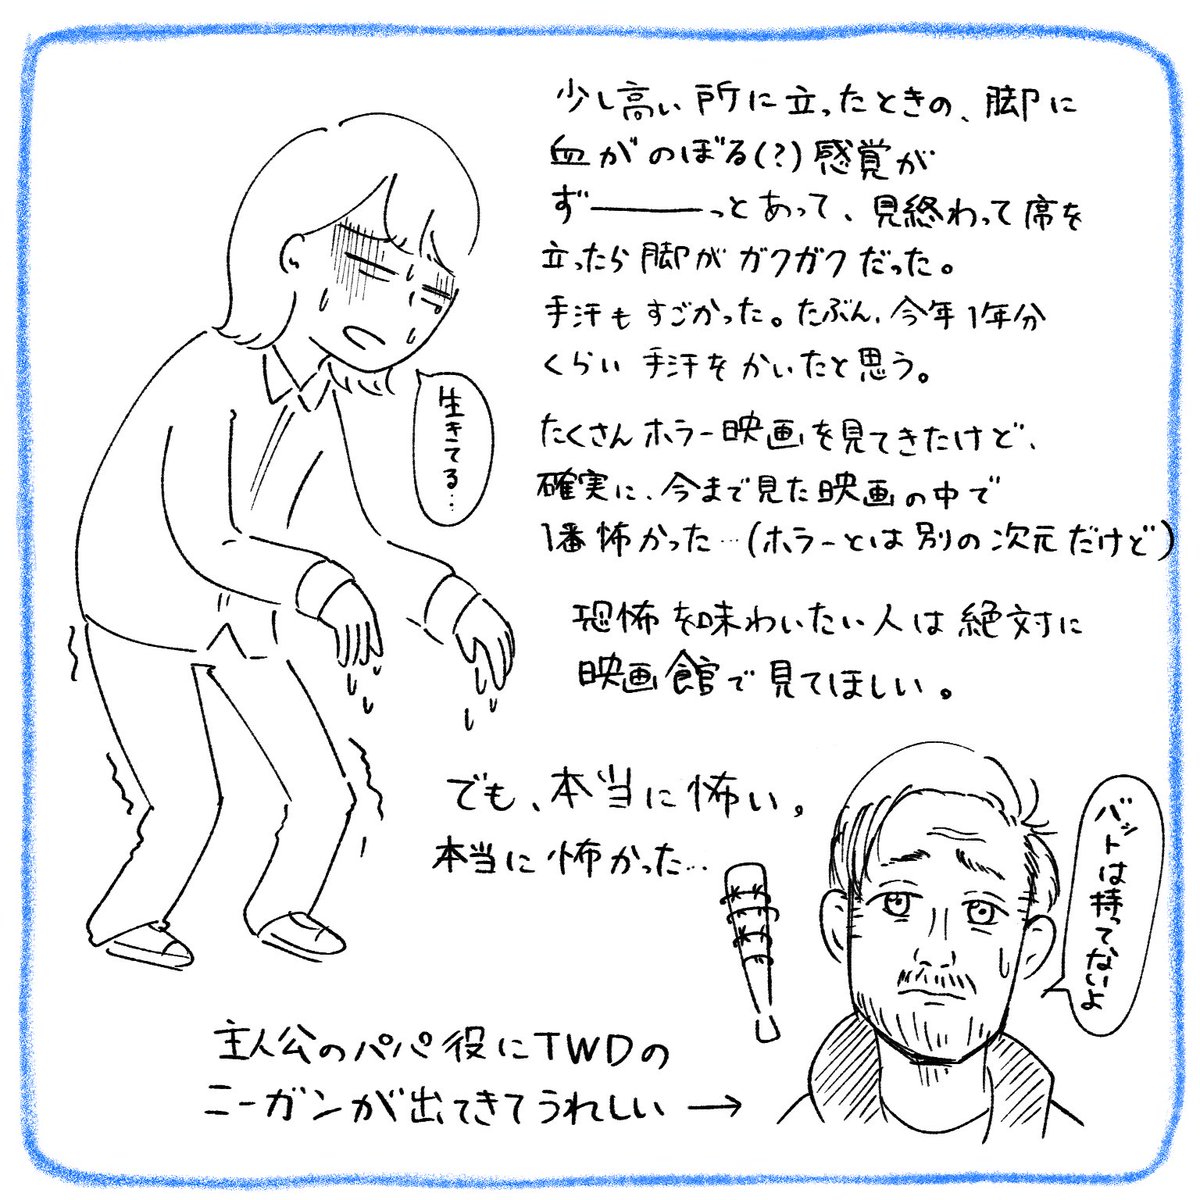 少し高い所に立ったときの、脚に
血がのぼる(?)感覚が
ず───っとあって、見終わって席を
立ったら脚がガクガクだった。
手汗もすごかった。たぶん、今年1年分
くらい手汗をかいたと思う。
生きてる…
たくさんホラー映画を見てきたけど、
確実に、今まで見た映画の中で
1番怖かった…(ホラーとは別の次元だけど)
恐怖を味わいたい人は絶対に
映画館で見てほしい。
でも、本当に怖い。
本当に怖かった…
バットは持ってないよ
主人公のパパ役にTWDの
ニーガンが出てきてうれしい→